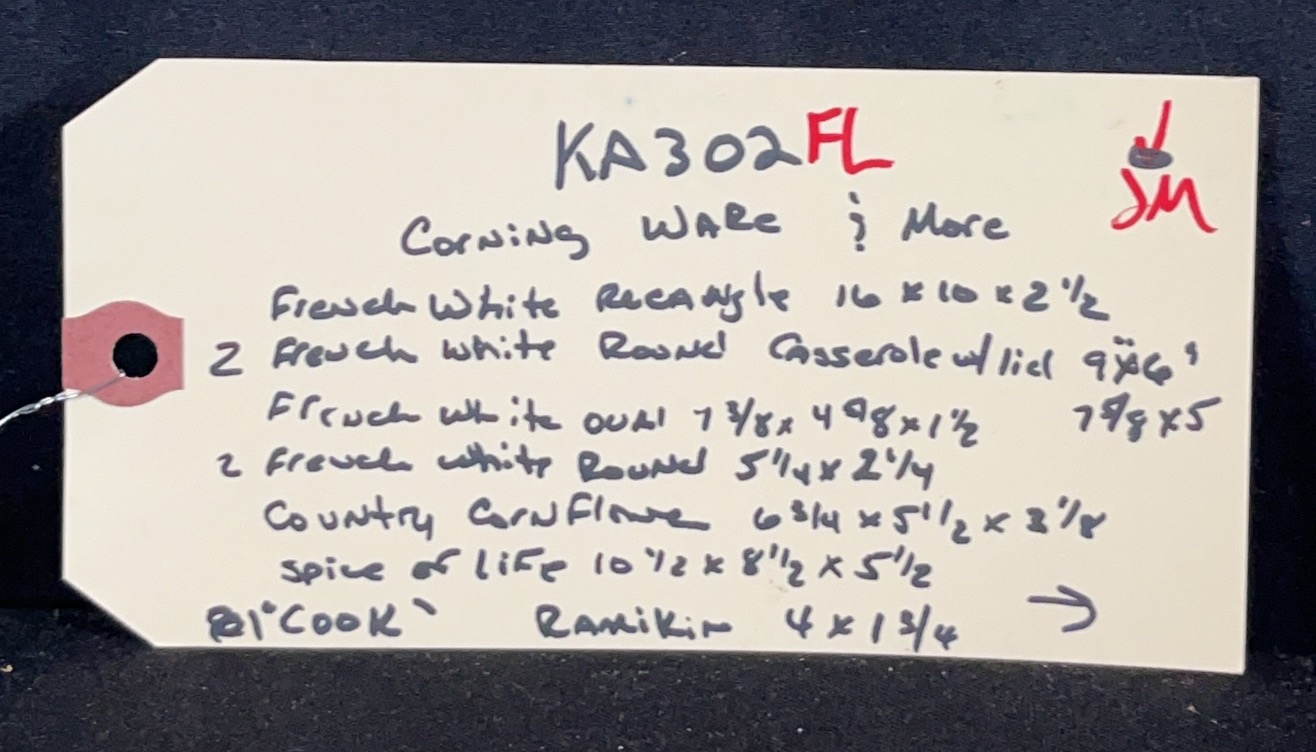 KA302 FL
JM
Corning Ware & More
French White Recangle 16 x 10 x 2 1/2
2 French White Round Casserole w/ lid 9" x 6"
French White oval 7 3/8 x 4 7/8 x 1 1/2 7 5/8 x 5
2 French White Round 5 1/4 x 2 1/4
Country Cornflower 6 3/4 x 5 1/2 x 3 1/8
Spice of Life 10 1/2 x 8 1/2 x 5 1/2
1 "COOK" Ramikin 4 x 1 3/4 →